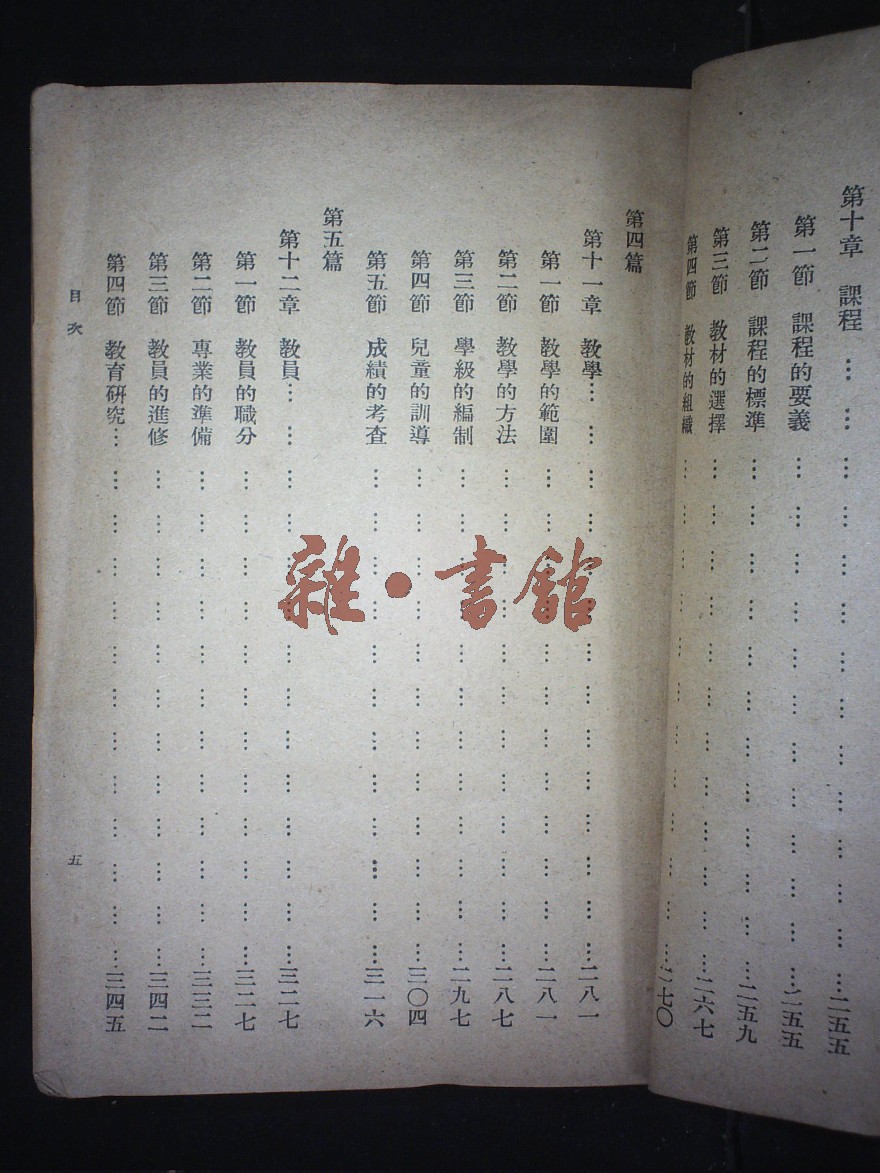 第十章　課程 … … … … … … … … … … … … … … 二五五
第一節　課程的要義 … … … … … … … … … … … … … 二五五
第二節　課程的標準 … … … … … … … … … … … … … 二五九
第三節　教材的選擇 … … … … … … … … … … … … … 二六七
第四節　教材的組織 … … … … … … … … … … … … 二七〇
第四篇
第十一章　教學 … … … … … … … … … … … … … … 二八一
第一節　教學的範圍 … … … … … … … … … … … … 二八一
第二節　教學的方法 … … … … … … … … … … … … 二八七
第三節　學級的編制 … … … … … … … … … … … … 二九七
第四節　兒童的訓導 … … … … … … … … … … … … 三〇四
第五節　成績的考查 … … … … … … … … … … … … 三一六
第五篇
第十二章　教員 … … … … … … … … … … … … … … 三二七
第一節　教員的職分 … … … … … … … … … … … … 三二七
第二節　專業的準備 … … … … … … … … … … … … 三三二
第三節　教員的進修 … … … … … … … … … … … … 三四二
第四節　教育研究 … … … … … … … … … … … … … 三四五
目次
五
雜·書館